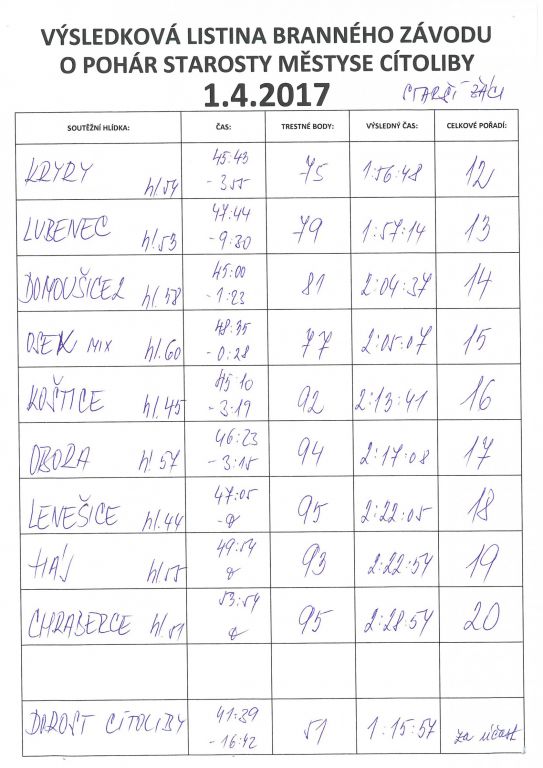 VÝSLEDKOVÁ LISTINA BRANNÉHO ZÁVODU
O POHÁR STAROSTY MĚSTYSE CÍTOLIBY
1.4.2017 STARŠÍ ŽÁCI
SOUTĚŽNÍ HLÍDKA: ČAS: TRESTNÉ BODY: VÝSLEDNÝ ČAS: CELKOVÉ POŘADÍ:
45:43
KRYRY hl.54 75 1:56:48 12
- 3:55
47:44
LUBENEC hl.53 79 1:57:14 13
- 9:30
45:00
DOMOUŠICE2 hl.58 81 2:04:37 14
- 1:23
48:35
OSEK MIX hl.60 77 2:05:07 15
- 0:28
45:10
KOŠTICE hl.45 92 2:13:41 16
- 3:19
46:23
OBORA hl.57 94 2:17:08 17
- 3:15
47:05
LENEŠICE hl.44 95 2:22:05 18
49:54
HÁJ hl.55 93 2:22:54 19
53:54
CHRABERCE hl.51 95 2:28:54 20
41:39
DOROST CÍTOLIBY 51 1:15:57 za účast
- 16:42